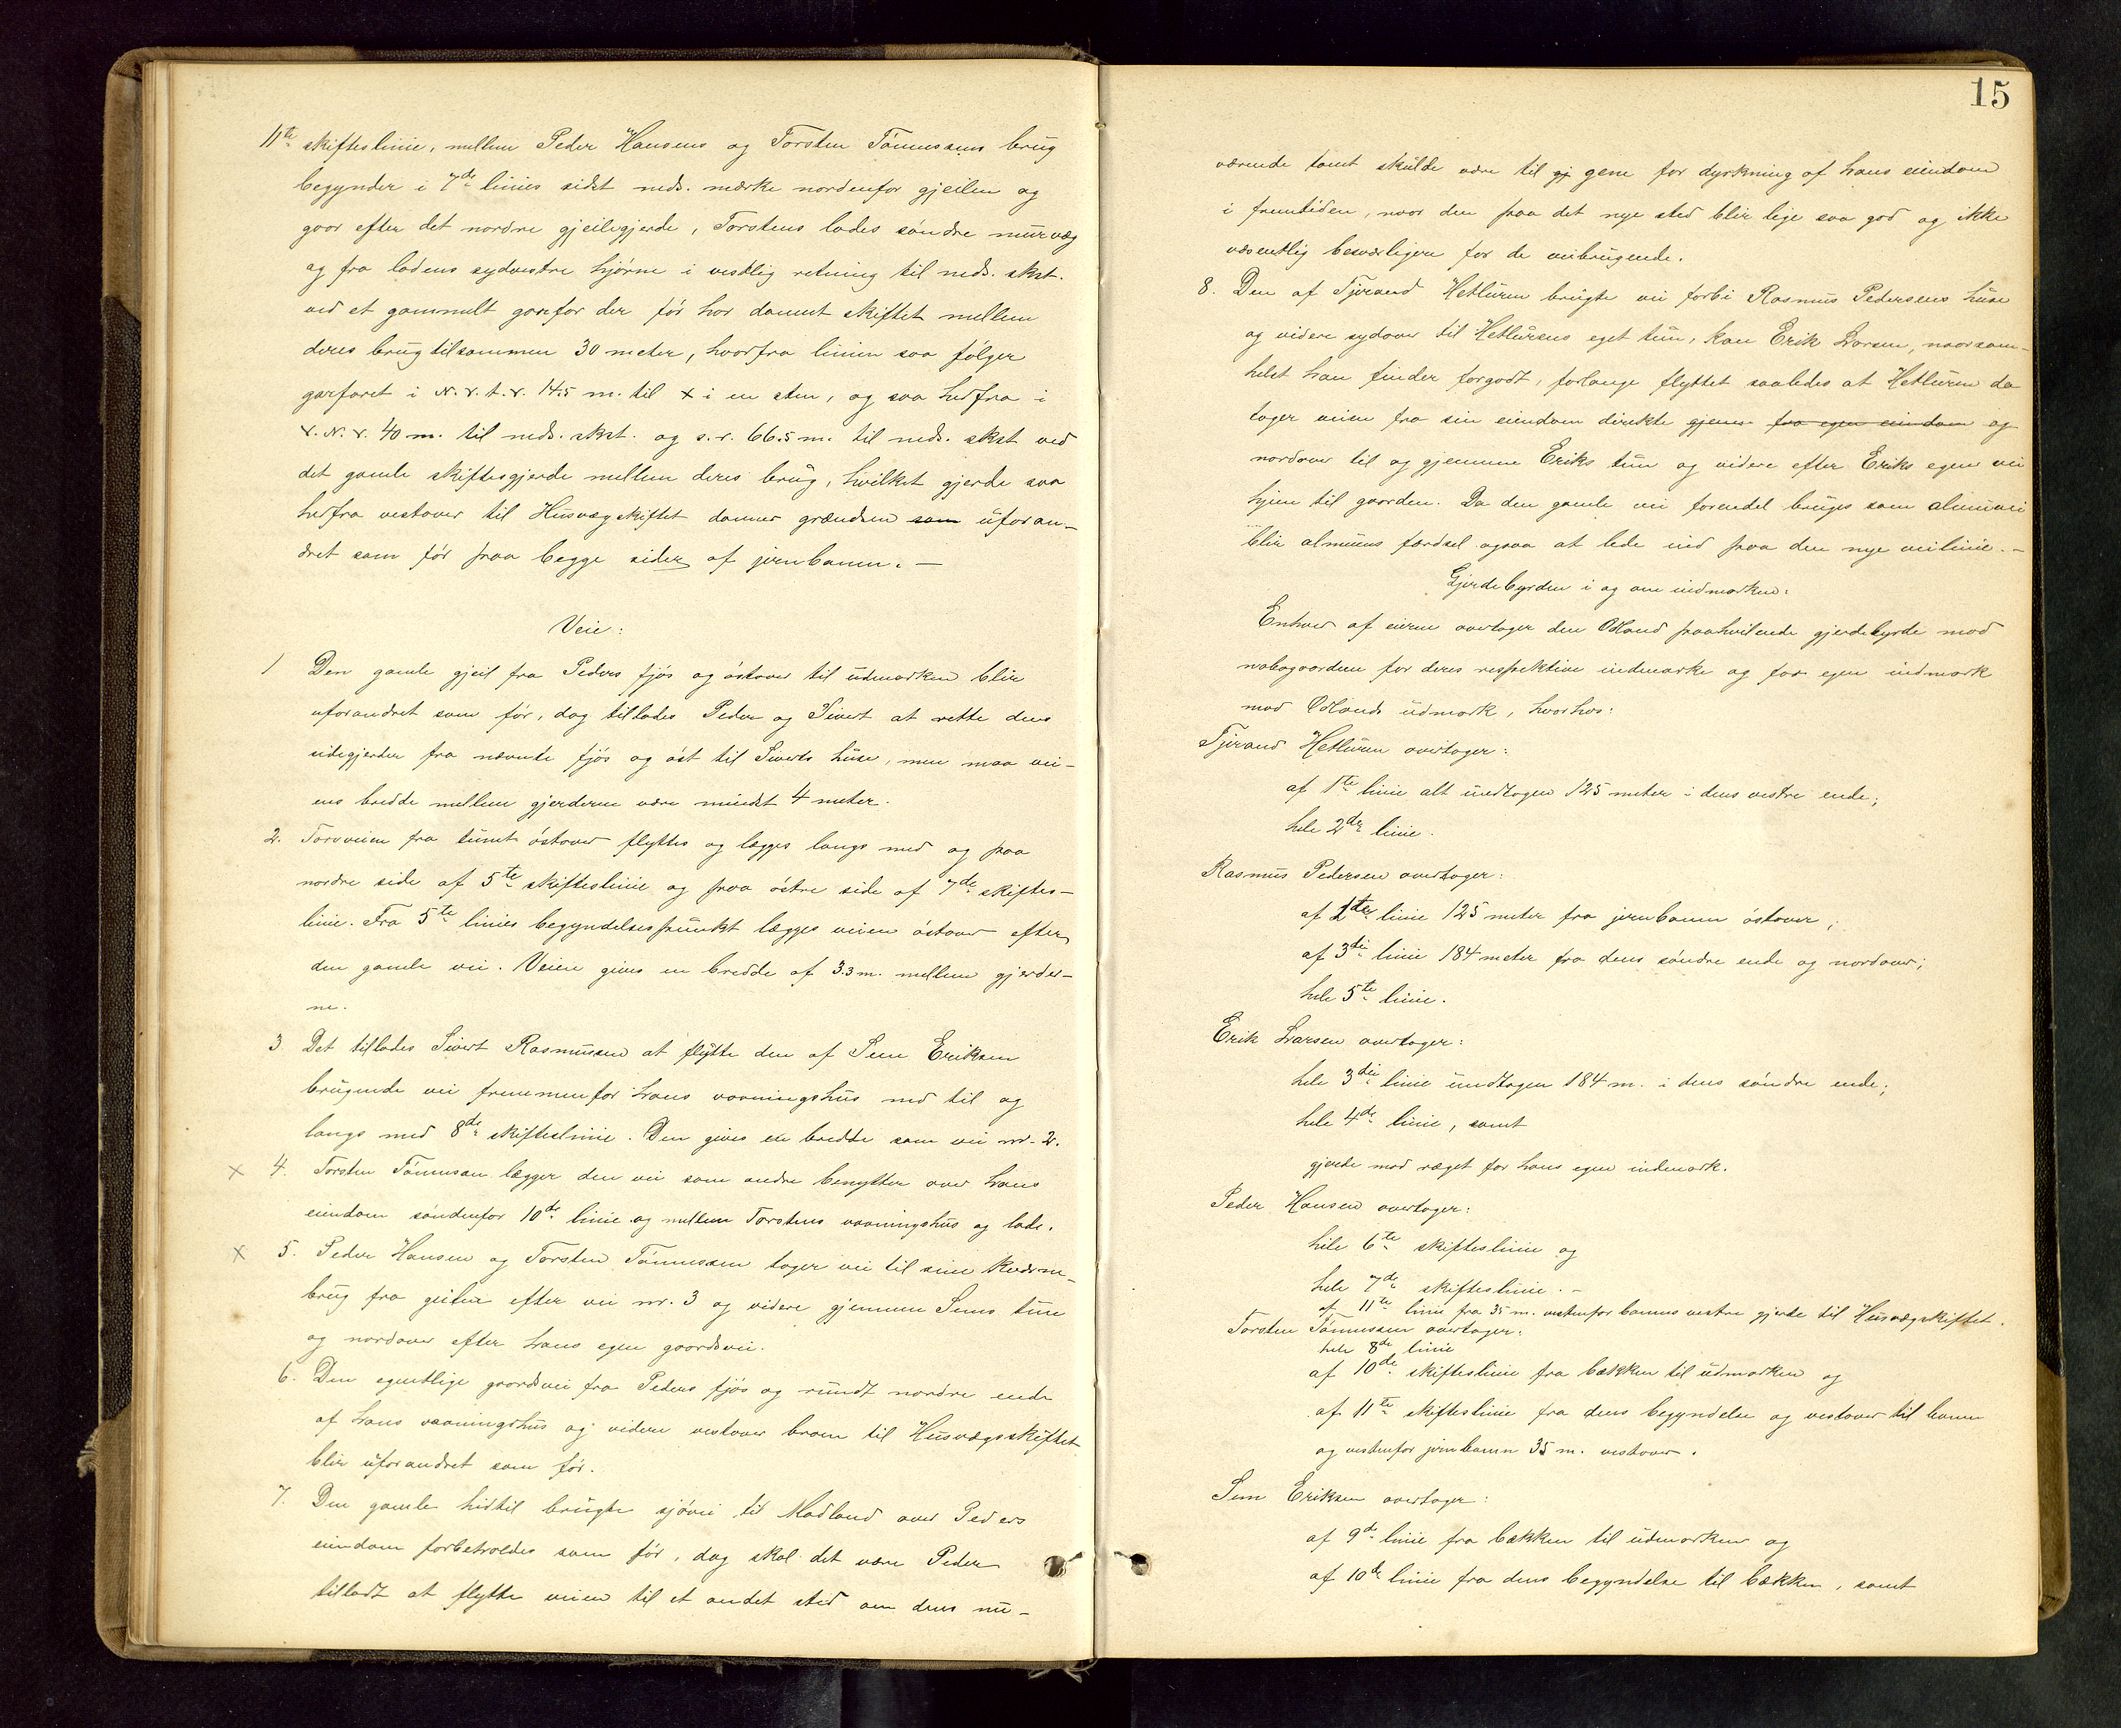 11te skifteslinie, mellem Peder Hansens og Torsten Tönnessens brug
begynder i 7de linies sidst neds. mærke nordenfor gjeilen og
gaar efter det nordre gjeilegjerde, Torstens lades söndre murvæg
og fra ladens sydvestre hjörne i vestlig retning til neds. skst.
ved et gammelt garfar der för har dannet skiftet mellem
deres brug tilsammen 30 meter, hvorfra linien saa fölger
garfaret i N.V.t.V. 145 m. til x i en sten, og saa herfra i
V.N.V. 40 m. til neds. skst. og s.v. 66.5 m. til neds. skst ved
det gamle skiftesgjerde mellem deres brug, hvilket gjerde saa
herfra vestover til Husvægskiftet danner grændsen som uforan-
dret som för paa begge sider af jernbanen. —
Veie:
1 Den gamle gjeil fra Peders fjös og östover til udmarken blir
uforandret som för, dog tillades Peder og Sivert at rette dens
sidegjerder fra nævnte fjös og öst til Siverts huse, men maa vei-
ens bredde mellem gjerderne være mindst 4 meter.
2. Torvveien fra tunet östover flyttes og lægges langs med og paa
nordre side af 5te skifteslinie og paa östre side af 7de skiftes-
linie. Fra 5te linies begyndelsespunkt lægges veien östover efter
den gamle vei. Veien gives en bredde af 3.3 m. mellem gjerder-
ne.
3 Det tillades Sivert Rasmussen at flytte den af Sem Eriksen
brugende vei fremmenfor hans vaaningshus ned til og
langs med 8de skifteslinie. Den gives en bredde som vei nr. 2.
x 4. Torsten Tönnesen lægger den vei som andre benytter over hans
eiendom söndenfor 10de linie og mellem Torstens vaaningshus og lade.
x 5. Peder Hansen og Torsten Tönnessen tager vei til sine Kværne-
brug fra geilen efter vei nr. 3 og videre gjennem Sems tun
og nordover efter hans egen gaardsvei.
6. Den egentlige gaardsvei fra Peders fjös og rundt nordre ende
af hans vaaningshus og videre vestover bram til Husvægsskiftet
blir uforandret som för.
7. Den gamle hidtil brugte sjövei til Madland over Peders
eiendom forbeholdes som för, dog skal det være Peder
tilladt at flytte veien til et andet sted om dens nu-
15
værende tomt skulde være til gj gene for dyrkning af hans eiendom
i fremtiden, naar den paa det nye sted blir lige saa god og ikke
væsentlig besværligere for de veibrugende.
8. Den af Tjerand Hetluren brugte vei forbi Rasmus Pedersens huse
og videre sydover til Hetlurens eget tun, kan Erik Larsen, naarsom-
helst han finder forgodt, forlange flyttet saaledes at Hetluren da
tager veien fra sin eiendom direkte gjenne fra egen eiendom og
nordover til og gjennem Eriks tun og videre efter Eriks egen vei
hjem til gaarden. Da den gamle vei forendel bruges som almuevei
blir almuens færdsel ogsaa at lede ind paa den nye veilinie. —
Gjerdebyrden i og om indmarken:
Enhver af eierne overtager den Odland paahvilende gjerdebyrde mod
nabogaardene for deres respektive indmarke og for egen indmark
mod Odlands udmark, hvorhos:
Tjerand Hetluren overtager:
af 1te linie alt undtagen 125 meter i dens vestre ende;
hele 2den linie.
Rasmus Pedersen overtager:
af 1ste linie 125 meter fra jernbanen östover;
af 3die linie 184 meter fra dens söndre ende og nordover;
hele 5te linie.
Erik Larsen overtager:
hele 3die linie undtagen 184 m. i dens söndre ende;
hele 4de linie, samt
gjerde mod ræget for hans egen indmark.
Peder Hansen overtager:
hele 6te skifteslinie og
hele 7de skifteslinie. -
af 11te linie fra 35 m. vestenfor banens vestre gjerde til Husvægskiftet.
Torsten Tönnessen overtager:
hele 8de linie
af 10de skifteslinie fra bækken til udmarken og
af 11te skifteslinie fra dens begyndelse og vestover til banen
og vestenfor jernbanen 35 m. vestover.
Sem Eriksen overtager:
af 9de linie fra bækken til udmarken og
af 10de linie fra dens begyndelse til bækken, samt